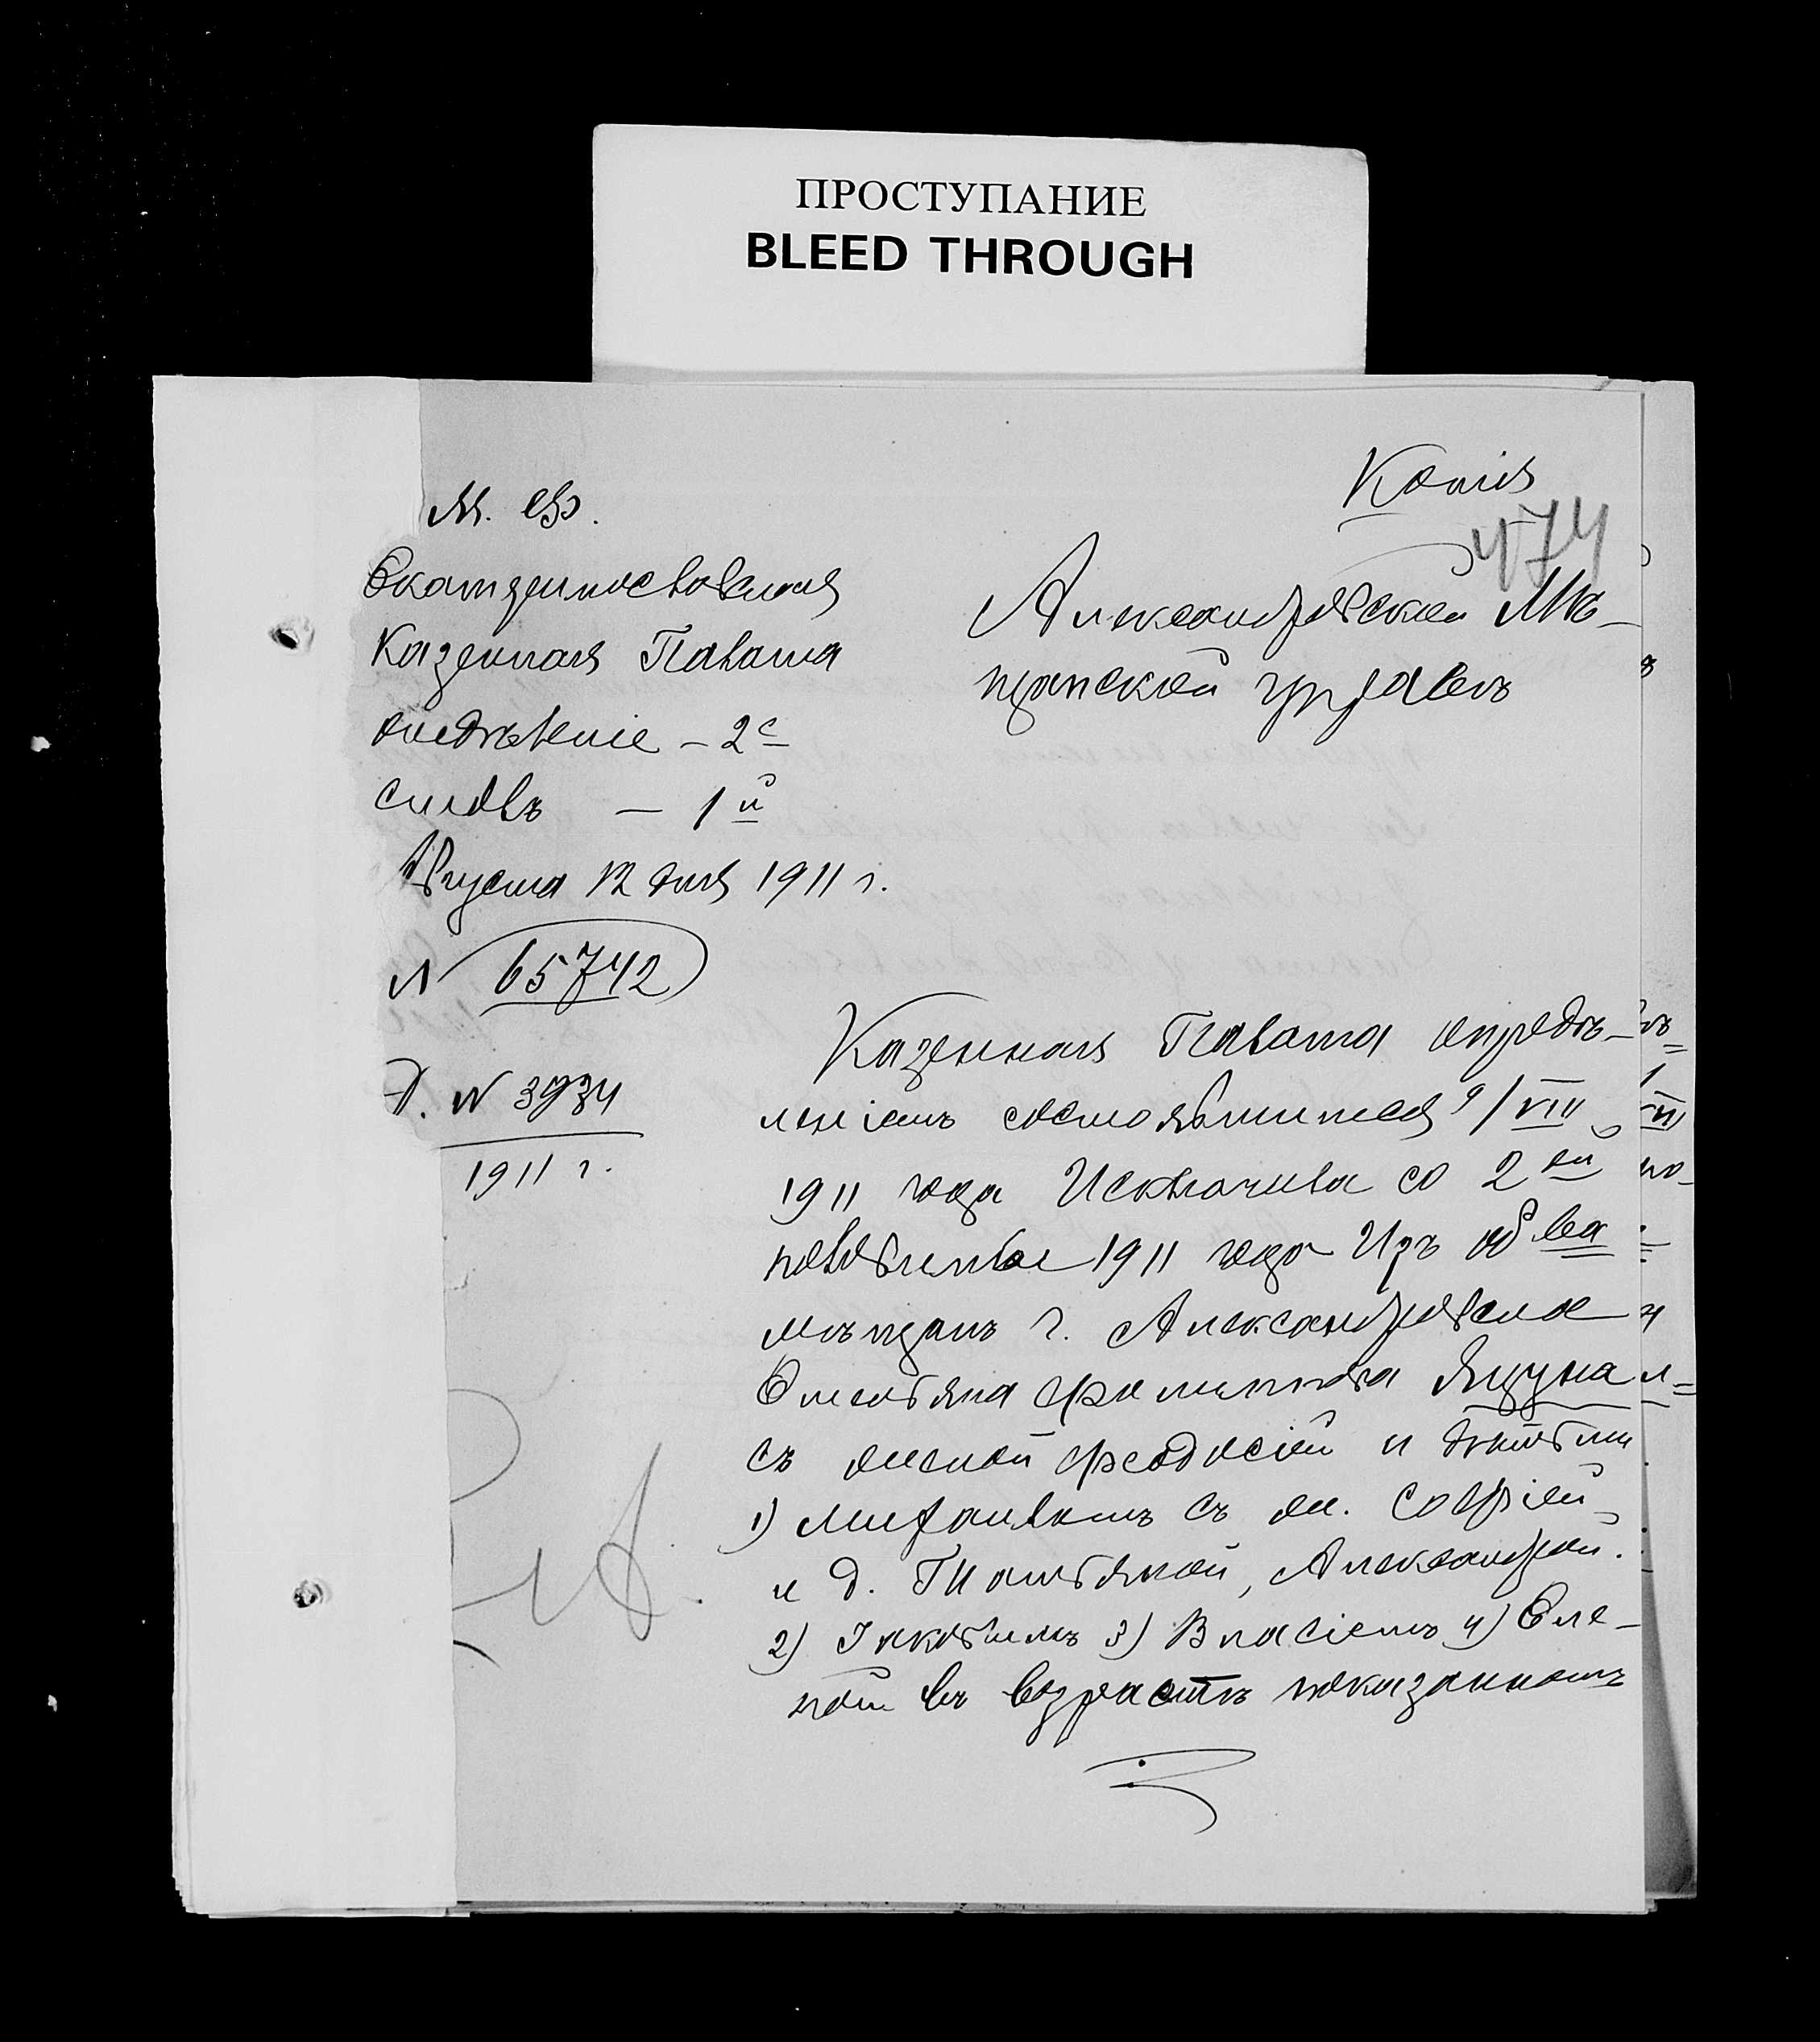 ПРОСТУПАНИЕ
BLEED THROUGH
Копія
474
М. Ф.
Екатеринославская
Казенная Палата
отдѣленіе – 2е
столъ – 1й
Августа 12 дня 1911 г.
N 65742
Д. N 3934
1911 г.
Александровской Мѣ-
щанской управѣ
Казенная Палата опредѣ-
леніемъ состоявшимся 9/VIII
1911 года Исключила со 2ой
половины 1911 года Изъ об ва
мѣщанъ г. Александровска
Емельяна Яцуна
съ женой Феодосіей и дѣтьми
1) Михаиломъ съ ж. Софіей
и д. Татьяной, Александрой.
2) Іаковомъ 3) Власіемъ 4) Еле-
ной въ возрастѣ показанномъ